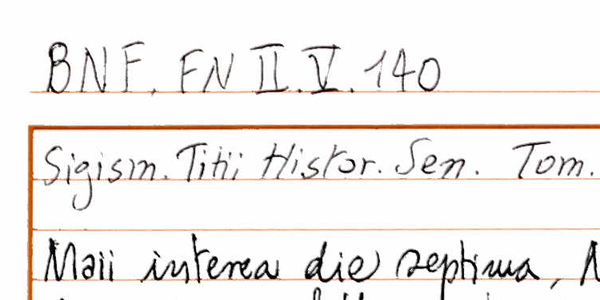 BNF. FN II.V.140
Sigism. Titii Histor. Sen. Tom.
Maii interea die septima,